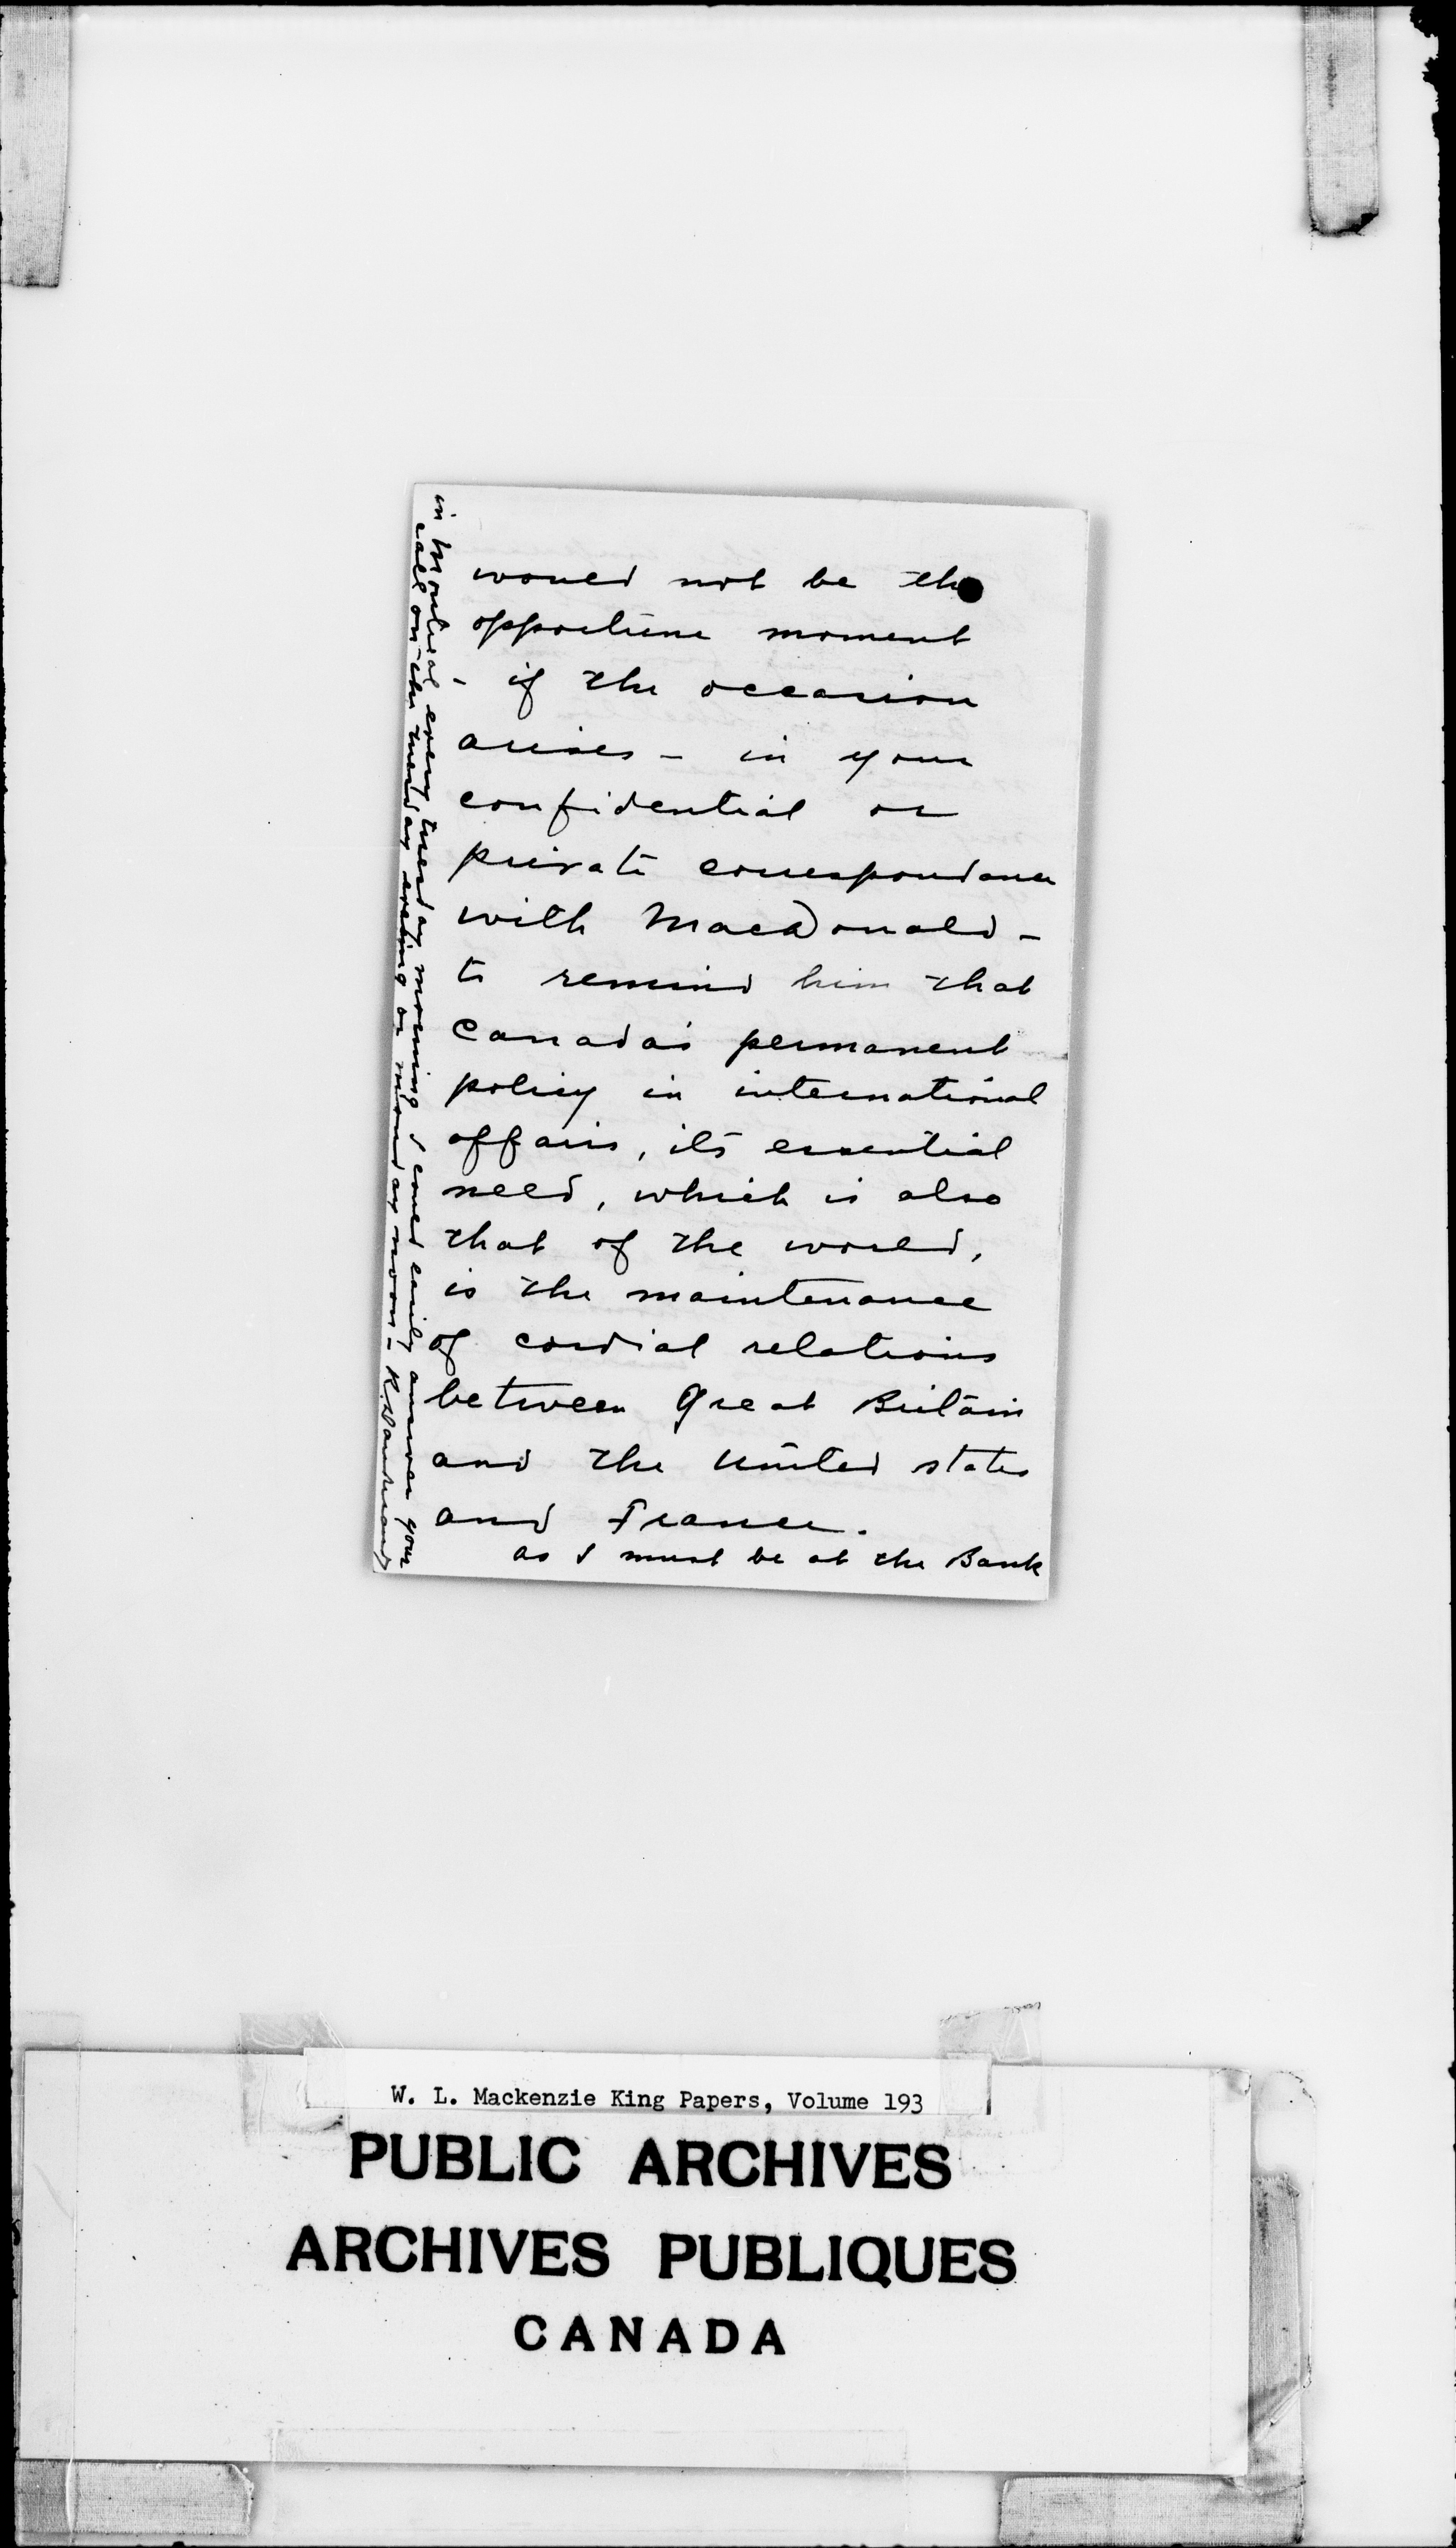 would not be the
opportune moment
- if the occasion
arises - in your
confidential or
private correspondance
with MacDonald -
to remind him that
Canada's permanent
policy in international
affairs, its essential
need, which is also
that of the world,
is the maintenance
of cordial relations
between Great Britain
and the United States
and France.
as I must be at the Bank
in Montreal every tuesday morning I could easily answer your
call on the tuesday evening or monday noon - R. Dandurand
W. L. Mackenzie King Papers, Volume 193
PUBLIC ARCHIVES
ARCHIVES PUBLIQUES
CANADA